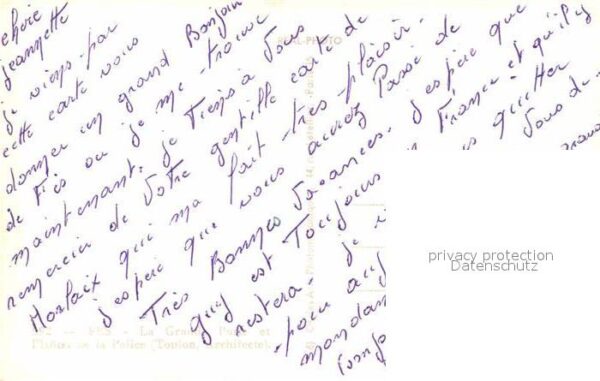 chère
Jeannette
je viens par
cette carte vous
donner un grand Bonjour
de Fès ou je me trouve
maintenant. je Tiens à vous
remercier de votre gentille carte de
Morlaix qui ma fait très plaisir.
j'espère que vous aurez Passé de
Très Bonnes Vacances. j'espère que
est Toujours France et qu'il y
restera. je quitter
pour vous de
REAL-PHOTO
FES - La Grande Poste et
de la Police (Toulon, Architecte).
privacy protection
Datenschutz